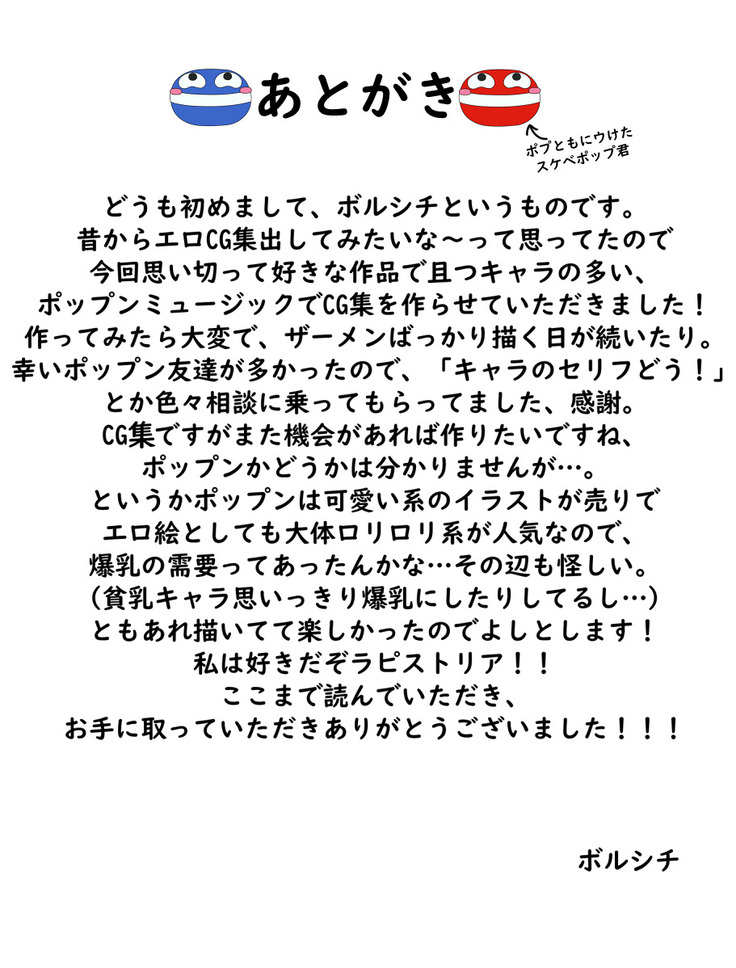 あとがき
ポプともにウけた
スケベポップ君
どうも初めまして、ボルシチというものです。
昔からエロCG集出してみたいな～って思ってたので
今回思い切って好きな作品で且つキャラの多い、
ポップンミュージックでCG集を作らせていただきました！
作ってみたら大変で、ザーメンばっかり描く日が続いたり。
幸いポップン友達が多かったので、「キャラのセリフどう！」
とか色々相談に乗ってもらってました、感謝。
CG集ですがまた機会があれば作りたいですね、
ポップンかどうかは分かりませんが…。
というかポップンは可愛い系のイラストが売りで
エロ絵としても大体ロリロリ系が人気なので、
爆乳の需要ってあったんかな…その辺も怪しい。
（貧乳キャラ思いっきり爆乳にしたりしてるし…）
ともあれ描いてて楽しかったのでよしとします！
私は好きだぞラピストリア！！
ここまで読んでいただき、
お手に取っていただきありがとうございました！！！
ボルシチ